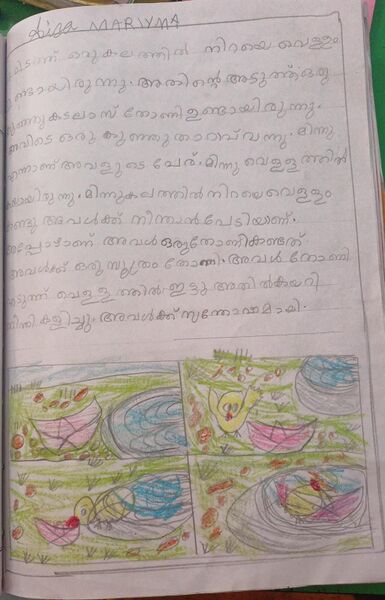 Liya MARIYMA
ഒരിടത്ത് ഒരു കുലത്തിൽ നിറയെ വെള്ളം
ഉണ്ടായിരുന്നു. അതിന്റെ അടുത്ത് ഒരു
കുഞ്ഞു കടലാസ് തോണി ഉണ്ടായിരുന്നു.
അവിടെ ഒരു കുഞ്ഞു താറാവ് വന്നു. മിന്നു
എന്നാണ് അവളുടെ പേര്. മിന്നു വെള്ളത്തിൽ
മിന്നു കുലത്തിൽ നിറയെ വെള്ളം
കണ്ടു അവൾക്ക് നീന്താൻ പേടിയാണ്.
അപ്പോഴാണ് അവൾ ഒരു തോണി കണ്ടത്
അവൾക്ക് ഒരു സൂത്രം തോന്നി. അവൾ തോണി
എടുത്ത് വെള്ളത്തിൽ ഇട്ടു അതിൽ കയറി
നീന്തി കളിച്ചു. അവൾക്ക് സന്തോഷമായി.